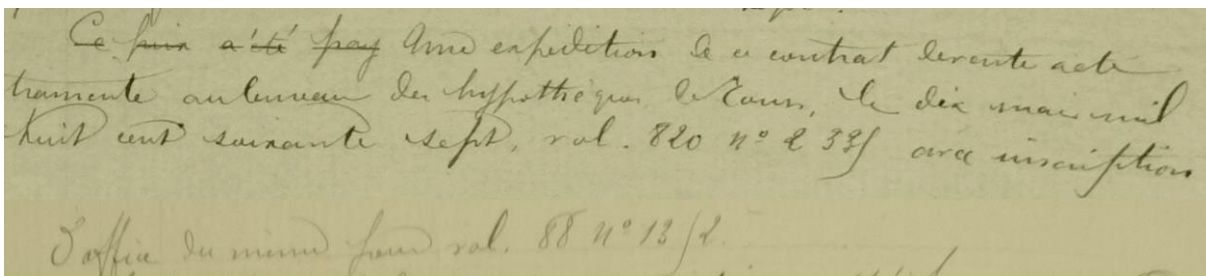 Ce prix a été pay Une expédition de ce contrat devente acté
transcrite aubureau des hypothèques de Tours, le dix mai mil
huit cent soixante sept, vol. 820 n° 2 335 avec inscription
d'office du même jour vol. 88 n° 1352.